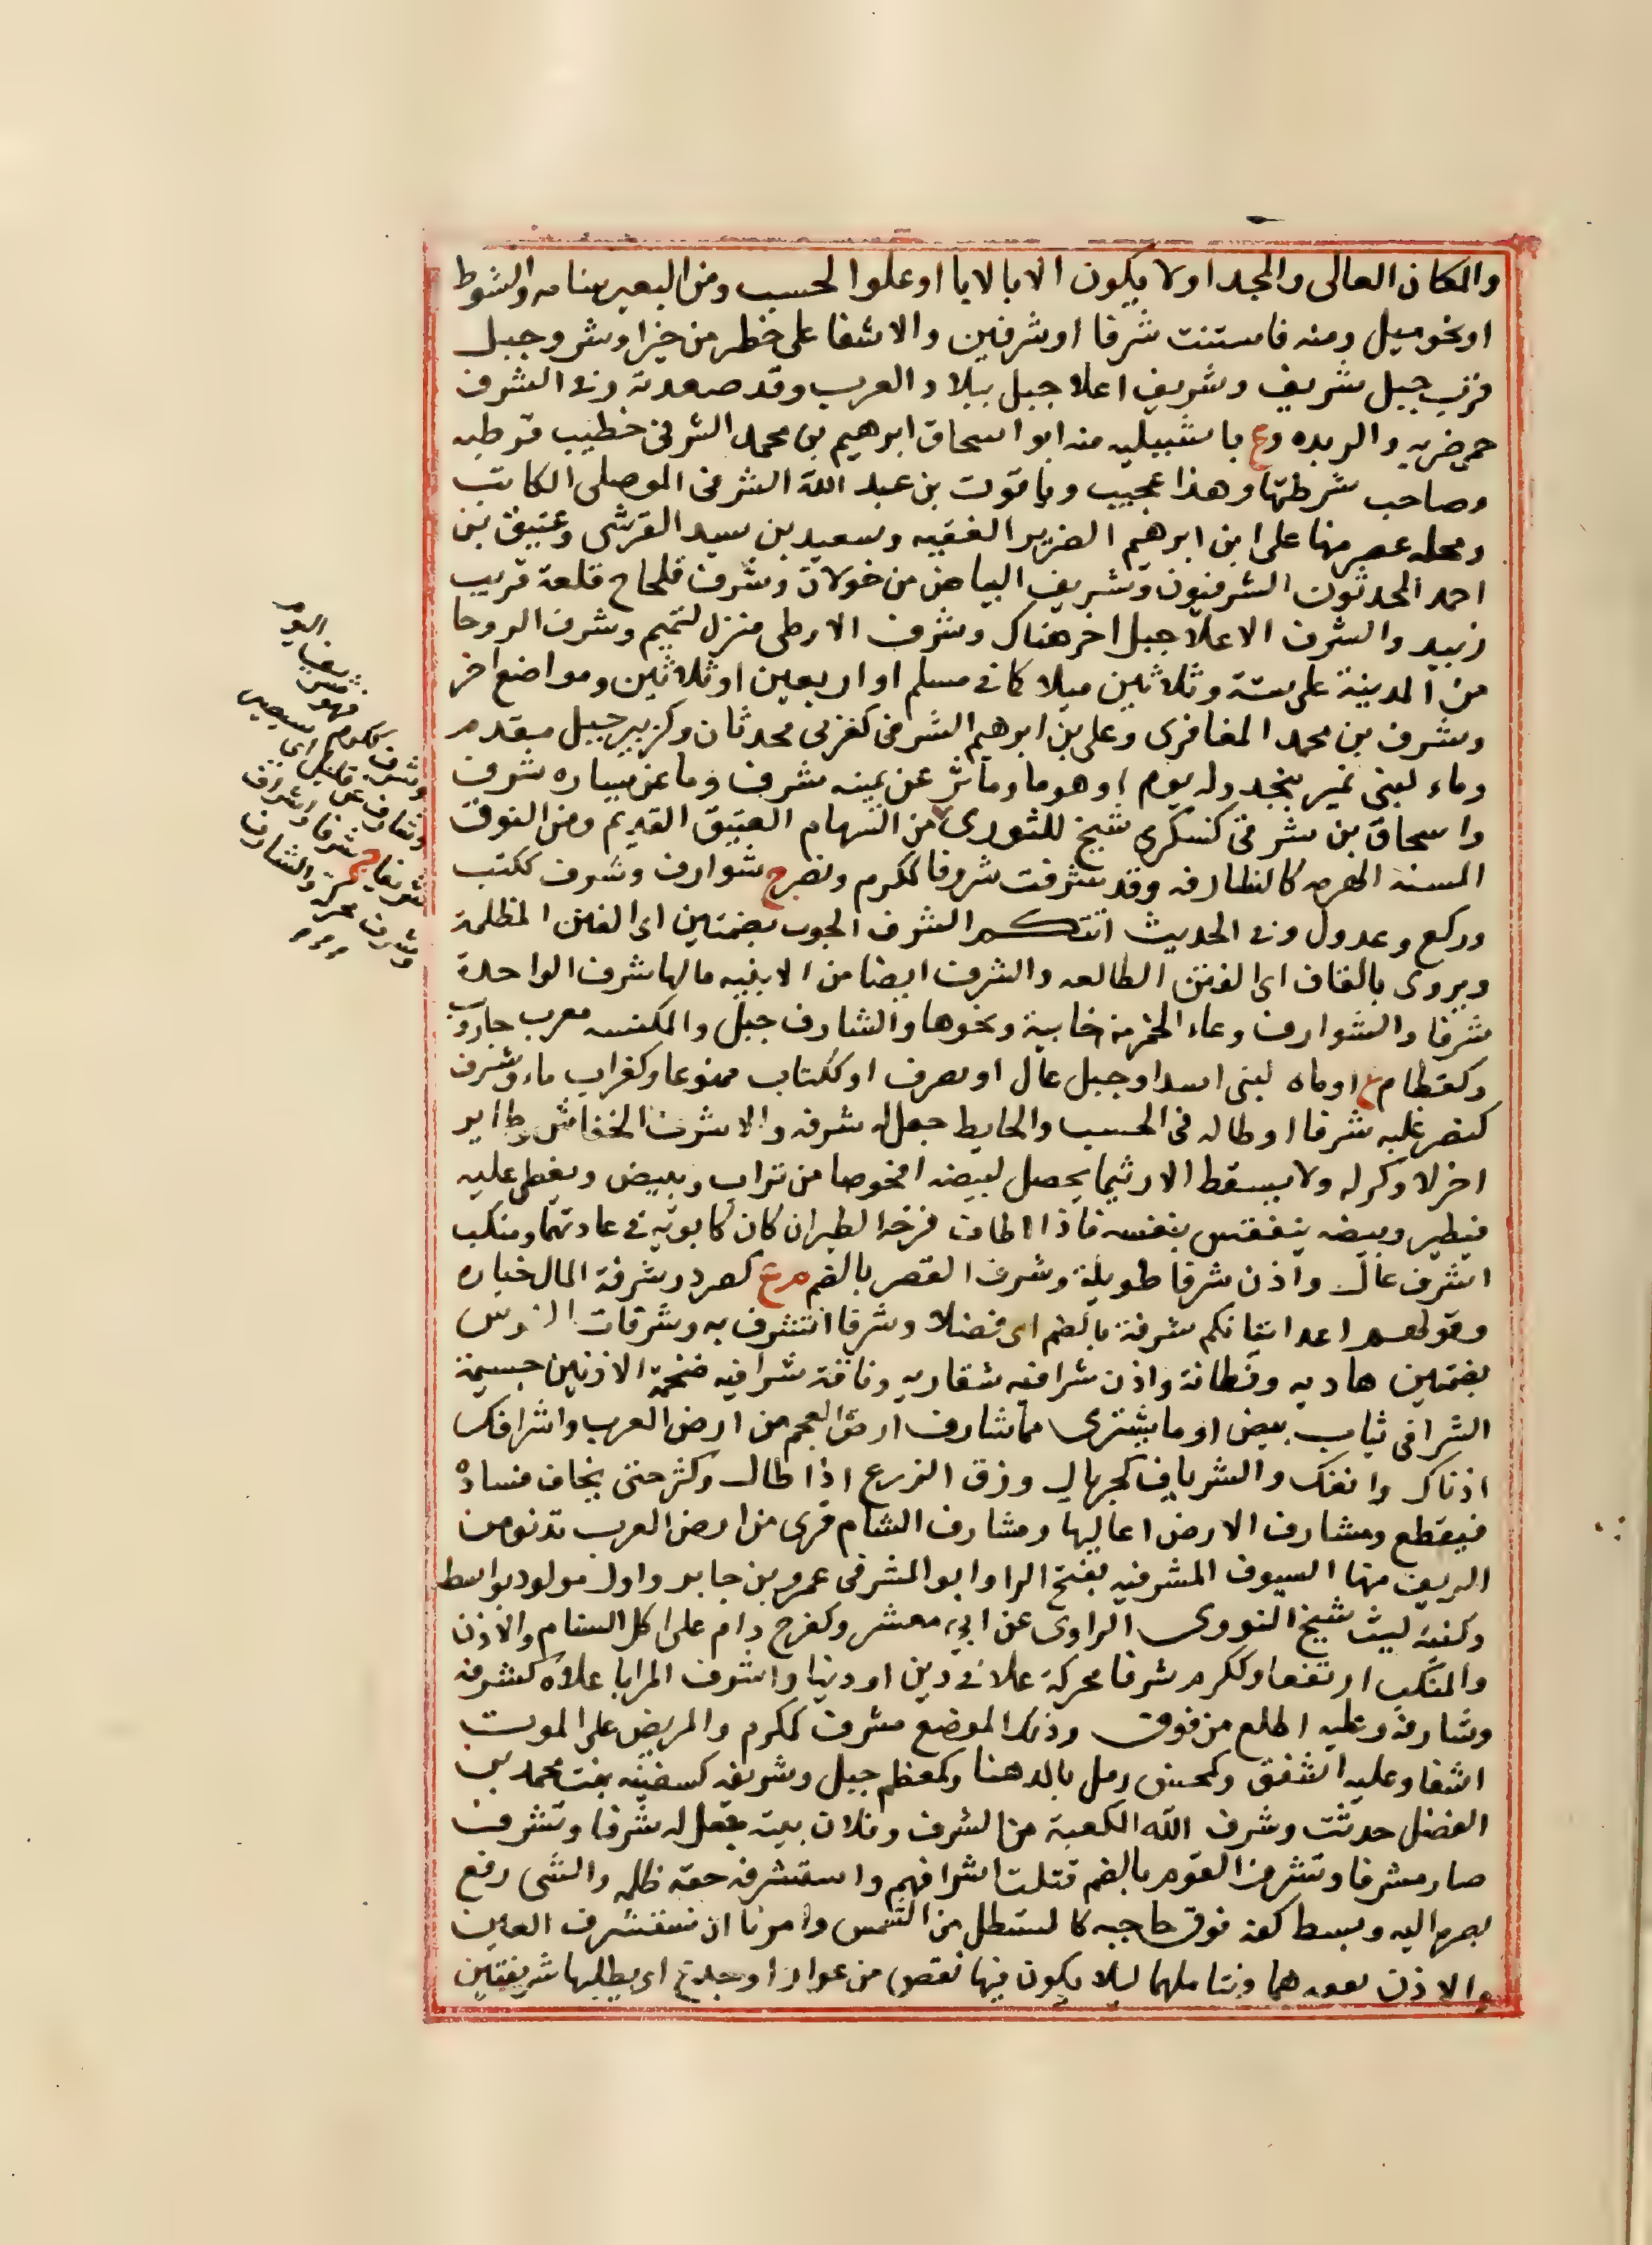 والمكان العالى والمجد اولا يكون الا بالابا اوعلوا الحسب ومن البعير سنامه والشوط
اونحوميل ومنه فاستنت شرفا اوشرفين والاشفا على خطر من خير اوشر وجبل
قرب جبل شريف وشريف اعلا جبل ببلاد العرب وقد صعدته وفى الشرف
حمى ضريه والربده وع باشبيليه منه ابواسحاق ابرهيم بن محمد الشرفى خطيب قرطبه
وصاحب شرطتها وهذا عجيب وياقوت بن عبد الله الشرفى الموصلى الكاتب
ومحله بمصر منها على ابن ابرهيم الضرير الفقيه وسعيد بن سيد القرشى وعتيق بن
احمد المحدثون الشرفيون وشريف البياض من خولان وشرف قلحاح قلعة قريب
زبيد والشرف الاعلا جبل اخر هناك وشرف الارطى منزل لتميم وشرف الروحا
من المدينة على ستة وثلاثين ميلا كما فى مسلم او اربعين او ثلاثين ومواضع اخر
وشرف بن محمد المغافرى وعلى بن ابرهيم الشرفى كعربى محدثان وكزبير جبل مقدم
وماء لبنى نمير بنجد وله يوم اوهو ما وما عن يمينه شرف وما عن يساره شريف
واسحاق بن شرفى كسكرى شيخ للثورى من السهام العتيق القديم ومن النوق
المسنه الهرمه كالشارفه وقد شرفت شروفا ككرم ونصر ج شوارف وشرف ككتب
وركع وعدول وفى الحديث اتتكم الشرف الجون بضمتين اى الفتن المظلمة
ويروى بالقاف اى الفتن الطالعه والشرف ايضا من الابنيه مالها شرف الواحدة
شرفا والشوارف وعاء الخمر من خابية ونحوها والشارف جبل والمكنسه معرب جاروب
وكقطام ع اوماه لبنى اسد اوجبل عال اويصرف اوككتاب ممنوعا وكغراب ماء وشرف
كنصر غلبه شرفا اوطاله فى الحسب والحايط جعل له شرفه والاشرف الخفاش وطاير
اخر لا وكر له ولا يسقط الا ريثما يحصل لبيضه افحوصا من تراب ويبيض ويغطى عليه
فيطير وبيضه يتفقس بنفسه فاذا اطاق فرخه الطيران كان كابويه فى عادتهما ومنكب
اشرف عال واذن شرفا طويلة وشرف القصر بالضم م ع كصرد وشرفة المال خياره
وقولهم اعد اتيانكم شرفة بالضم اى فضلا وشرفا اتشرف به وشرفات الفرس
بضمتين هاديه وقطاته واذن شرافيه شفاريه وناقة شرافيه ضخمة الاذنين جسيمة
الشرافى ثياب بيض اوما يشترى مما شارف ارض العجم من ارض العرب واشرافك
اذناك وانفك والشرياف كجريال ورق الزرع اذا طال وكثر حتى يخاف فساده
فيقطع ومشارف الارض اعاليها ومشارف الشام قرى من ارض العرب تدنو من
الريف منها السيوف المشرفيه بفتح الرا وابوالمشرفى عمرو بن جابر واول مولود بواسط
وكنيه ليث شيخ النووى الراوى عن ابى معشر وكفرح دام على اكل السنام والاذن
والمنكب ارتفعا وككرم شرفا محركة علا فى دين اودنيا واشرف المرايا علاه كشرفه
وشارفه وعليه اطلع من فوق وذلك الموضع مشرف كمكرم والمريض على الموت
اشفا وعليه اشفق وكمحسن رمل بالدهنا وكمعظم جبل وشريفه كسفينه بنت محمد بن
الفضل حدثت وشرف الله الكعبة من الشرف وفلان بيته جعل له شرفا وتشرف
صار مشرفا وتشرف القوم بالضم قتلت اشرافهم واستشرفه حقه ظلمه والشى رفع
بصره اليه وبسط كفه فوق حاجبه كالمستظل من الشمس وامرنا ان نستشرف العين
والاذن نتفقدهما ونتاملهما ليلا يكون فيها نقص من عوار اوجدع اى يطلبها شريفتين